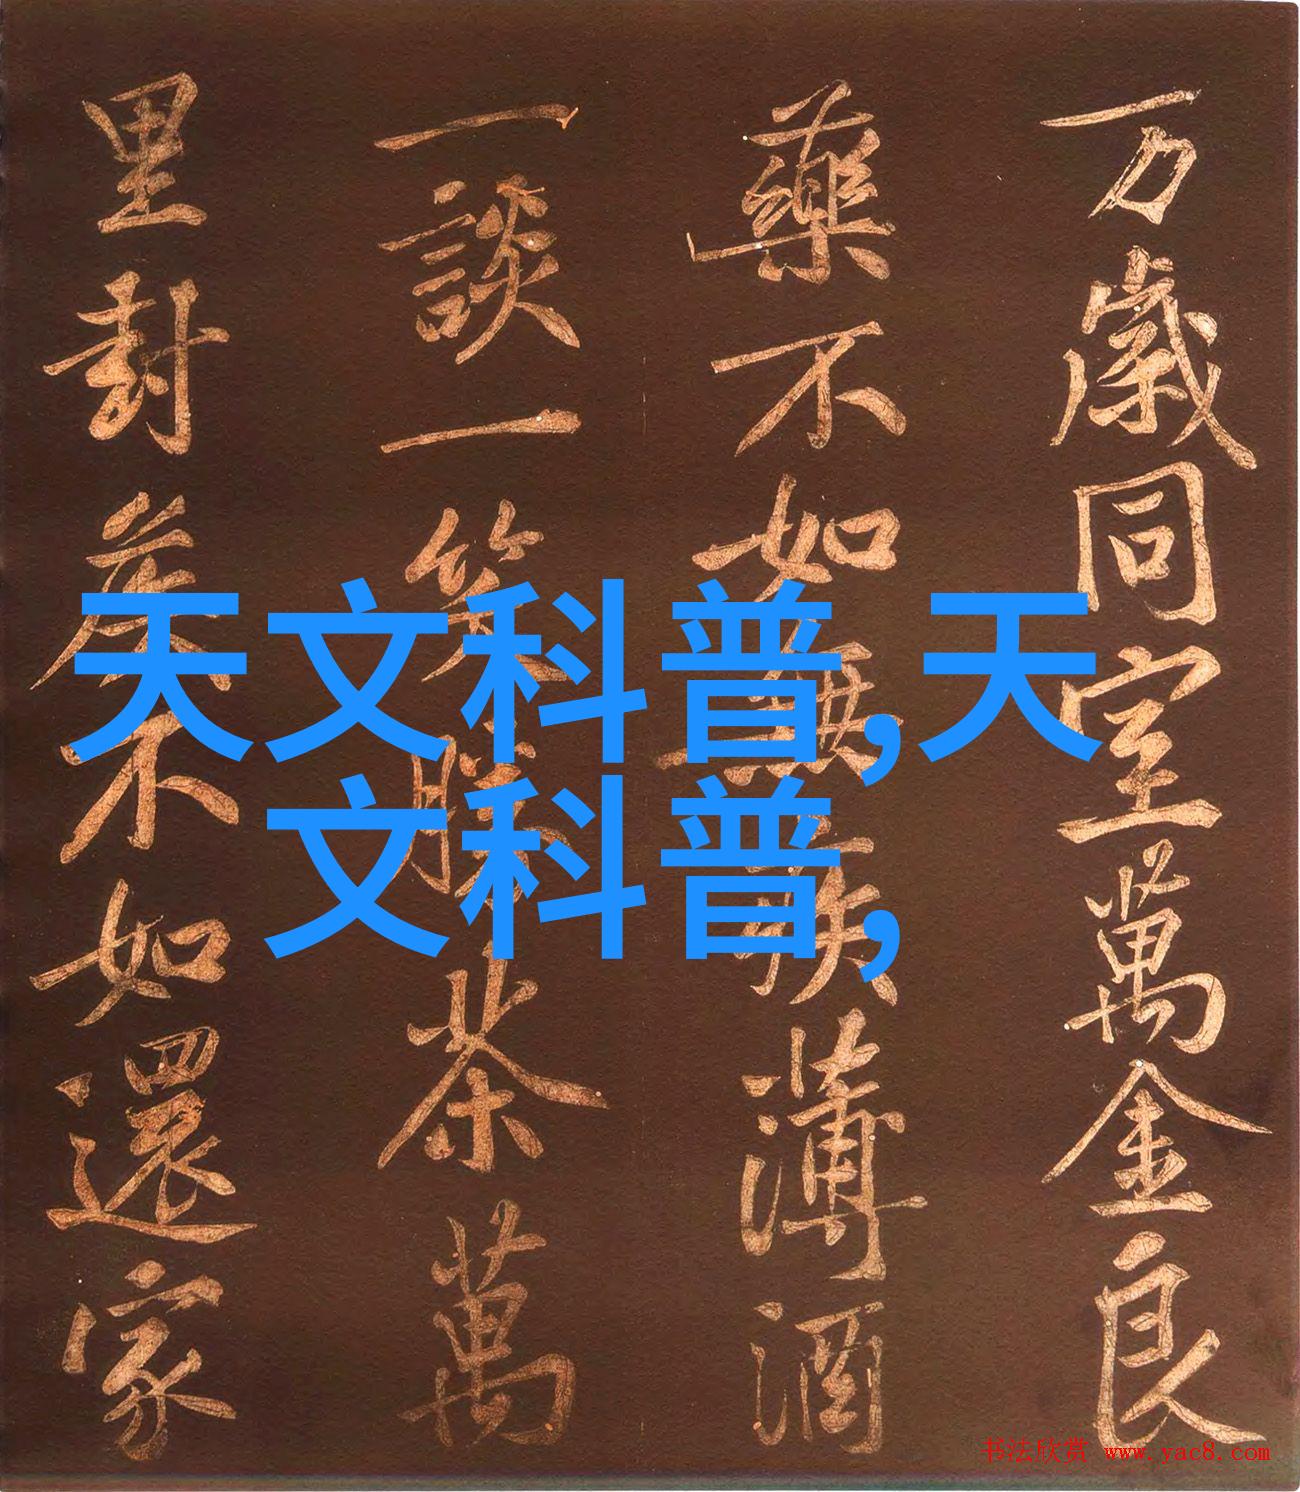 万歲同室萬金良
藥不如無疾薄酒
一談一笑勝茶萬
里封侯不如還家
天文科普,天
文科普,
书法欣赏 www.yac8.com